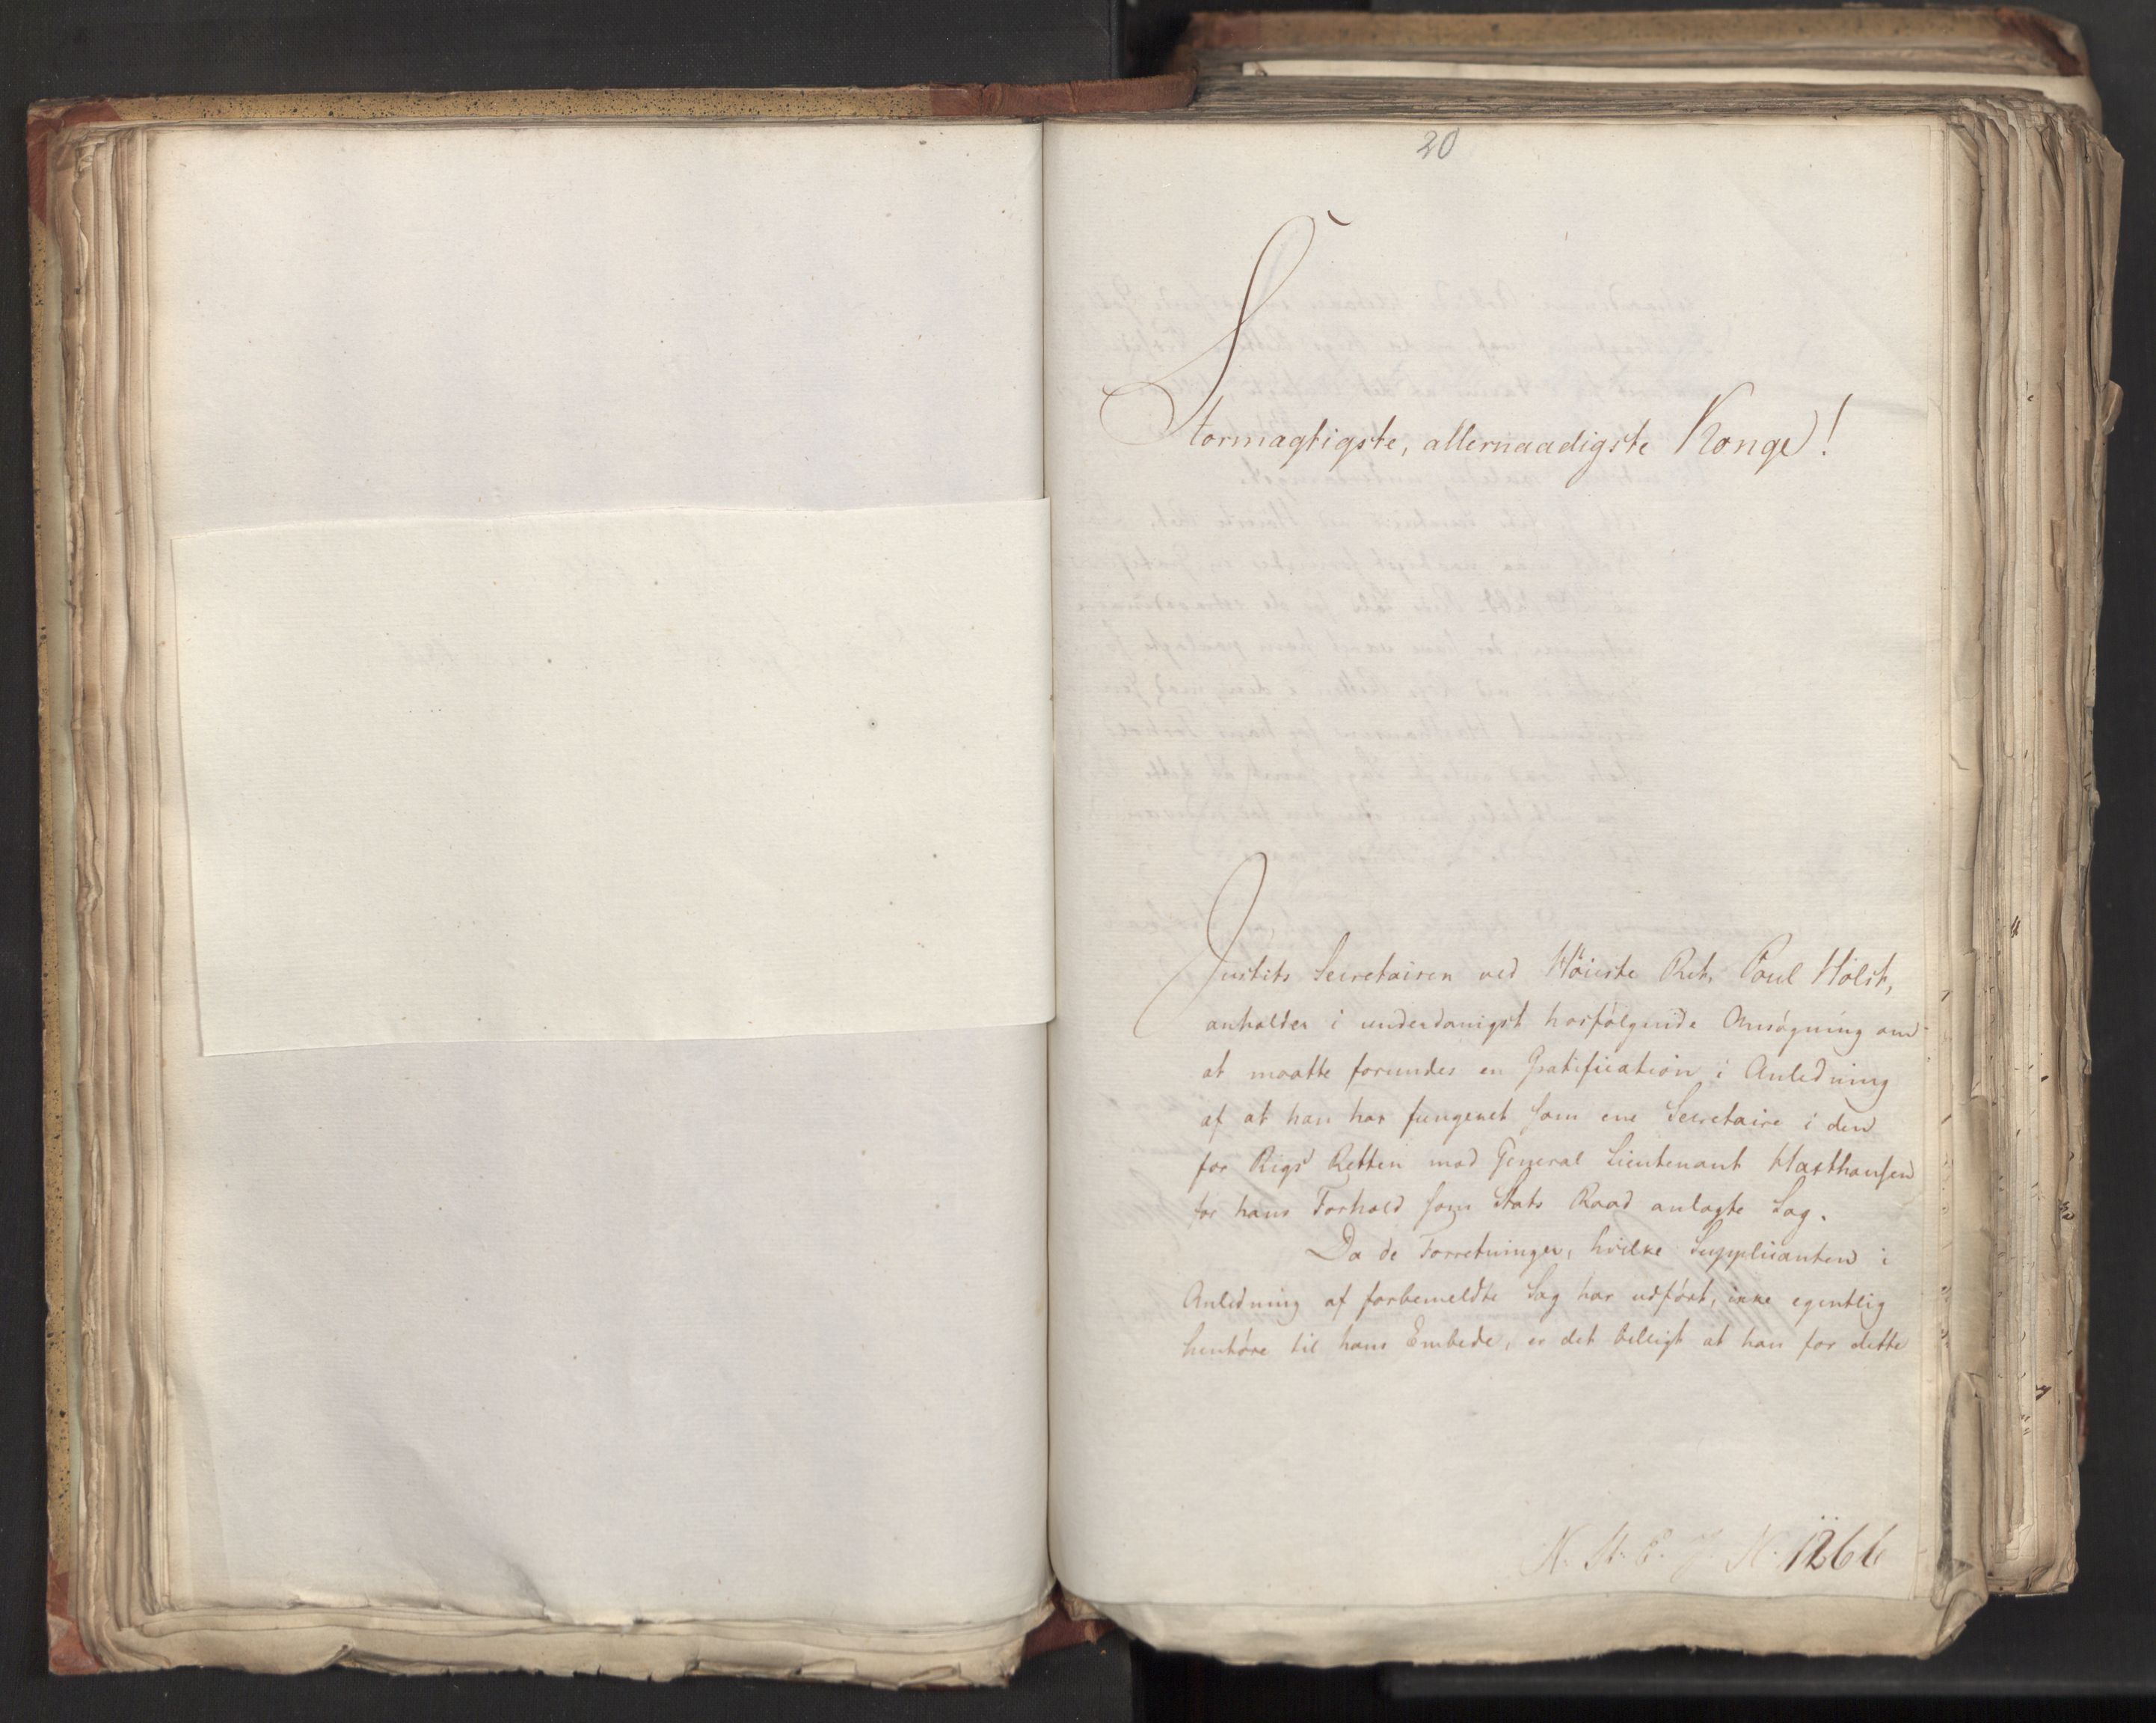 20
Stormagtigste, allernaadigste Konge!
Justits Secretairen ved Höieste Ret, Poul Holst,
anholder i underdanigst hosfølgende Ansøgning om
at maatte forundes en Gratification i Anledning
af at han har fungeret som ene Secretaire i den
for Rigs Retten mod General Lieutenant Haxthausen
for hans Forhold som Stats Raad anlagte Sag.
Da de Forretninger, hvilke Supplicanten i
Anledning af forbemeldte Sag har udført, ikke egentlig
henhøre til hans Embede, er det billigt at han for dette
N. 1266